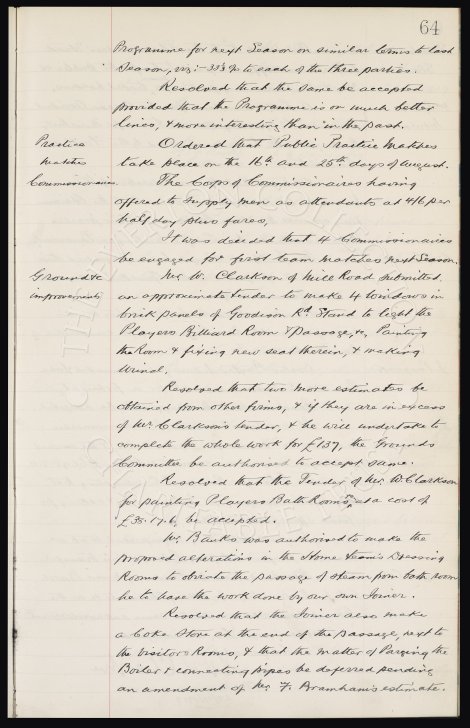 64
Programme for next Season on similar terms to last
Season, viz:- 33⅓ % to each of the three parties.
Resolved that the same be accepted
provided that the Programme is on much better
lines, & more interesting than in the past.
Practice
Matches
Ordered that Public Practice Matches
take place on the 16th and 25th days of August.
Commissionaires.
The Corps of Commissionaires having
offered to supply men as attendants at 4/6 per
half day plus fares,
It was decided that 4 Commissionaires
be engaged for first team matches next Season.
Ground &c
improvements
Mr. W. Clarkson of Mill Road submitted
an approximate tender to make 4 windows in
brick panels of Goodison Rd Stand to light the
Players Billiard Room & passage, &c, Painting
the Room & fixing new seat therein, & making
Urinal.
Resolved that two more estimates be
obtained from other firms, & if they are in excess
of Mr. Clarkson's tender, & he will undertake to
complete the whole work for £137, the Grounds
Committee be authorised to accept same.
Resolved that the Tender of Mr. W. Clarkson
for painting Players Bath Rooms, at a cost of
£35.17.6, be accepted.
Mr. Banks was authorised to make the
proposed alterations in the Home team's Dressing
Rooms to obviate the passage of steam from bath room
he to have the work done by our own Joiner.
Resolved that the Joiner also make
a Coke Store at the end of the passage, next to
the Visitors Rooms, & that the matter of Parging the
Boiler & connecting pipes be deferred pending
an amendment of Mr. F. Bramham's estimate.